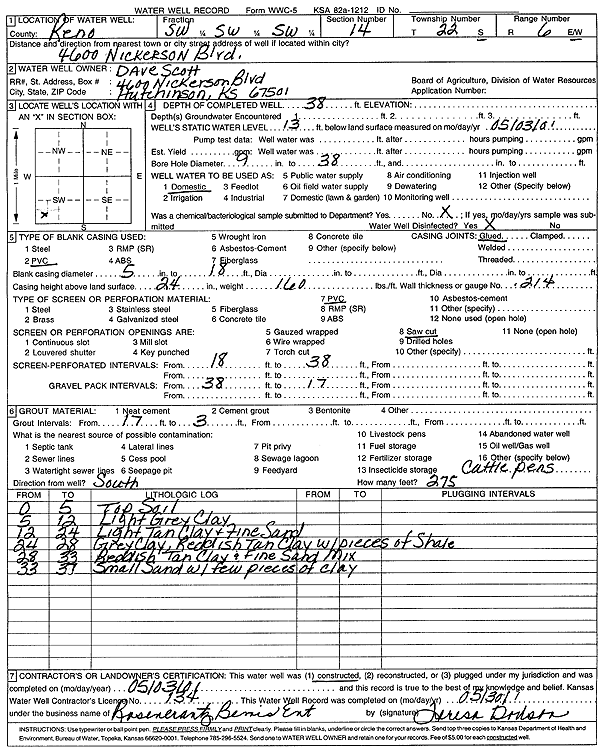 WATER WELL RECORD Form WWC-5 KSA 82a-1212 ID No.
1 LOCATION OF WATER WELL: Fraction Section Number Township Number Range Number
County: Reno SW ¼ SW ¼ SW ¼ 14 T 22 S R 6 E/W
Distance and direction from nearest town or city street address of well if located within city?
4600 Nickerson Blvd.
2 WATER WELL OWNER: Dave Scott
RR#, St. Address, Box # : 4600 Nickerson Blvd Board of Agriculture, Division of Water Resources
City, State, ZIP Code : Hutchinson, KS 67501 Application Number:
3 LOCATE WELL'S LOCATION WITH AN "X" IN SECTION BOX:
N
NW NE
W E
SW SE
X
S
1 Mile
4 DEPTH OF COMPLETED WELL 38 ft. ELEVATION:
Depth(s) Groundwater Encountered 1 ft. 2. ft. 3. ft.
WELL'S STATIC WATER LEVEL 13 ft. below land surface measured on mo/day/yr 05/03/01
Pump test data: Well water was ft. after hours pumping gpm
Est. Yield gpm: Well water was ft. after hours pumping gpm
Bore Hole Diameter 9 in. to 38 ft., and in. to ft.
WELL WATER TO BE USED AS: 5 Public water supply 8 Air conditioning 11 Injection well
1 Domestic 3 Feedlot 6 Oil field water supply 9 Dewatering 12 Other (Specify below)
2 Irrigation 4 Industrial 7 Domestic (lawn & garden) 10 Monitoring well
Was a chemical/bacteriological sample submitted to Department? Yes No X ; If yes, mo/day/yrs sample was submitted
Water Well Disinfected? Yes X No
5 TYPE OF BLANK CASING USED: 5 Wrought iron 8 Concrete tile CASING JOINTS: Glued Clamped
1 Steel 3 RMP (SR) 6 Asbestos-Cement 9 Other (specify below) Welded
2 PVC 4 ABS 7 Fiberglass Threaded
Blank casing diameter 5 in. to 18 ft., Dia in. to ft., Dia in. to ft.
Casing height above land surface 24 in., weight 160 lbs./ft. Wall thickness or gauge No. .214
TYPE OF SCREEN OR PERFORATION MATERIAL: 7 PVC 10 Asbestos-cement
1 Steel 3 Stainless steel 5 Fiberglass 8 RMP (SR) 11 Other (specify)
2 Brass 4 Galvanized steel 6 Concrete tile 9 ABS 12 None used (open hole)
SCREEN OR PERFORATION OPENINGS ARE: 5 Gauzed wrapped 8 Saw cut 11 None (open hole)
1 Continuous slot 3 Mill slot 6 Wire wrapped 9 Drilled holes
2 Louvered shutter 4 Key punched 7 Torch cut 10 Other (specify)
SCREEN-PERFORATED INTERVALS: From 18 ft. to 38 ft., From ft. to ft.
From ft. to ft., From ft. to ft.
GRAVEL PACK INTERVALS: From 38 ft. to 17 ft., From ft. to ft.
From ft. to ft., From ft. to ft.
6 GROUT MATERIAL: 1 Neat cement 2 Cement grout 3 Bentonite 4 Other
Grout Intervals: From 17 ft. to 3 ft., From ft. to ft., From ft. to ft.
What is the nearest source of possible contamination: 10 Livestock pens 14 Abandoned water well
1 Septic tank 4 Lateral lines 7 Pit privy 11 Fuel storage 15 Oil well/Gas well
2 Sewer lines 5 Cess pool 8 Sewage lagoon 12 Fertilizer storage 16 Other (specify below)
3 Watertight sewer lines 6 Seepage pit 9 Feedyard 13 Insecticide storage Cattle pens
Direction from well? South How many feet? 275
FROM TO LITHOLOGIC LOG FROM TO PLUGGING INTERVALS
0 5 Top Soil
5 12 Light Grey Clay
12 24 Light Tan Clay + Fine Sand
24 28 Grey Clay, Reddish Tan Clay w/ pieces of Shale
28 33 Reddish Tan Clay & Fine Sand Mix
33 37 Small Sand w/ few pieces of clay
7 CONTRACTOR'S OR LANDOWNER'S CERTIFICATION: This water well was (1) constructed, (2) reconstructed, or (3) plugged under my jurisdiction and was
completed on (mo/day/year) 05/03/01 and this record is true to the best of my knowledge and belief. Kansas
Water Well Contractor's Licence No. 134 This Water Well Record was completed on (mo/day/yr) 05/30/1
under the business name of Rosencrantz Bemis Ent by (signature) Teresa Dodson
INSTRUCTIONS: Use typewriter or ball point pen. PLEASE PRESS FIRMLY and PRINT clearly. Please fill in blanks, underline or circle the correct answers. Send top three copies to Kansas Department of Health and
Environment, Bureau of Water, Topeka, Kansas 66620-0001. Telephone 785-296-5524. Send one to WATER WELL OWNER and retain one for your records. Fee of $5.00 for each constructed well.